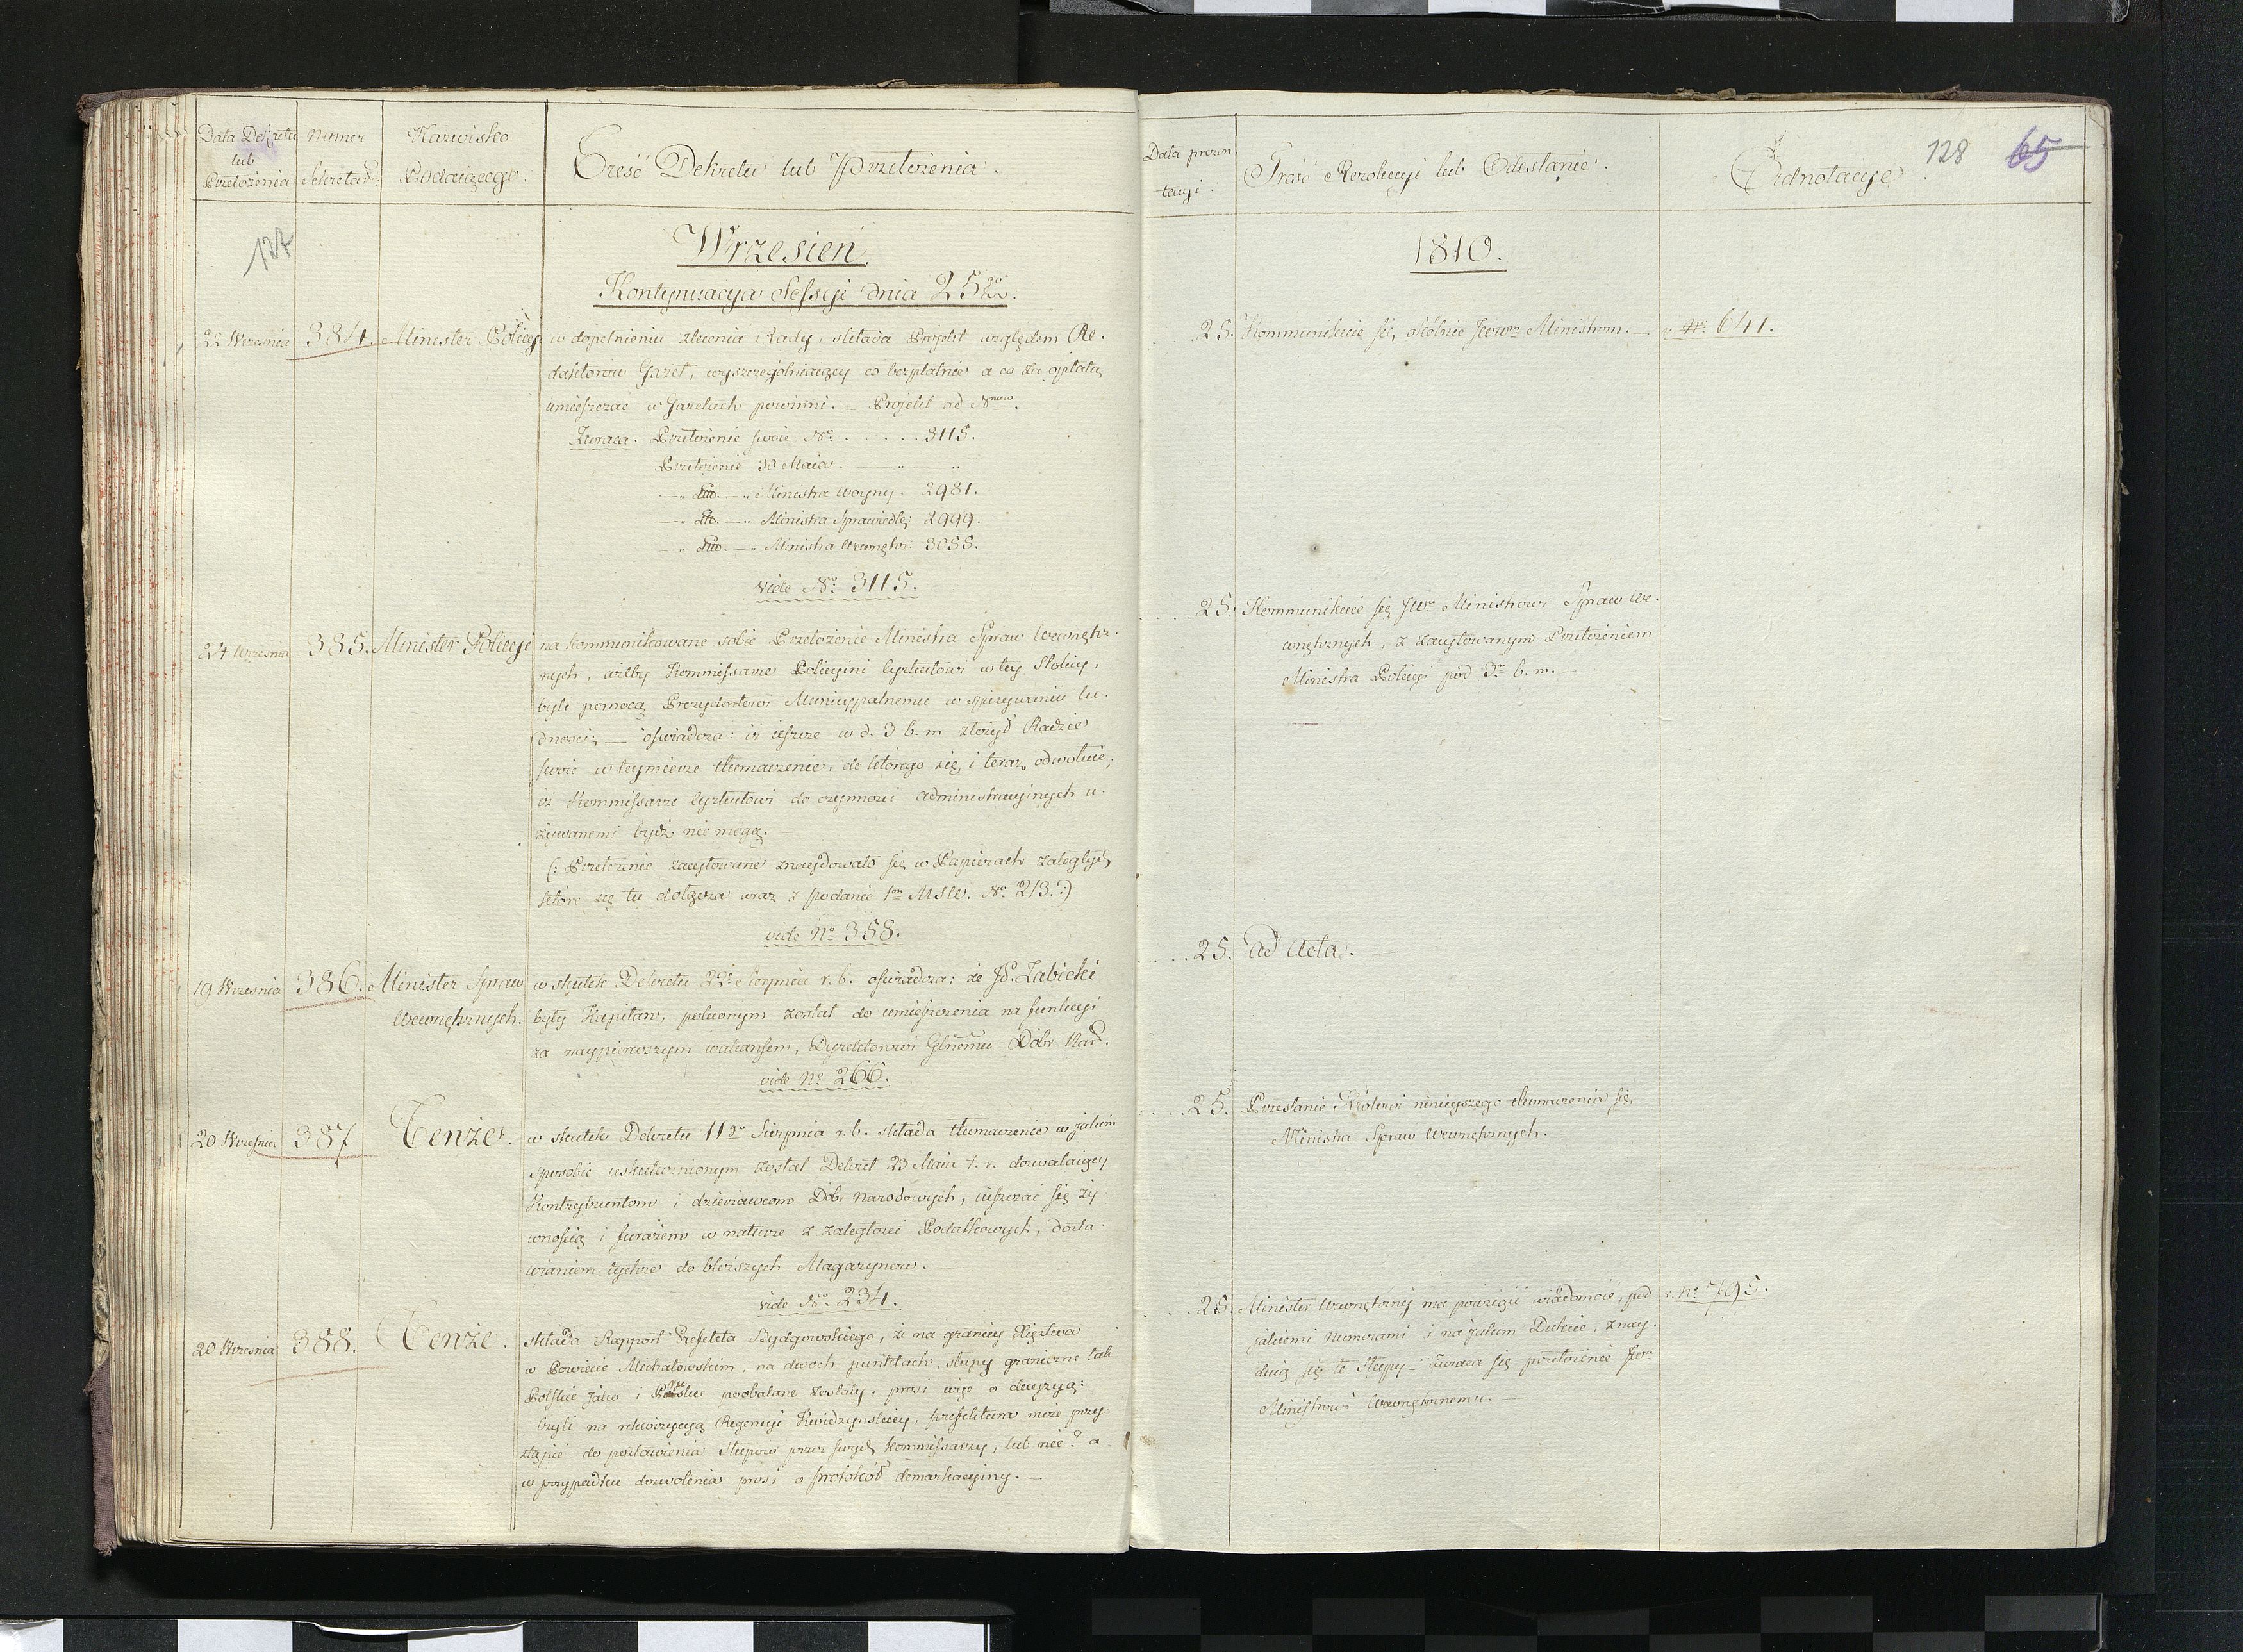 Data Dekretu
lub
Przełożenia
Numer
Sekretar:
Nazwisko
Podaiącego.
Treść Dekretu lub Przełożenia.
127
Wrzesień.
Kontynuacya Sessyi dnia 25go.
22 Września
384.
Minister Policyi
w dopełnieniu zlecenia Rady, składa Projekt względem Re-
daktorow Gazet, wyszczególniaiący co bezpłatnie a co za opłatą
umieszczać w Gazetach powinni. – Projekt ad Num.
Zwraca. Przełożenie swoie No . . . . . 3115.
Przełożenie 30 Maia. — „ „
—„ dtto. —„ Ministra Woyny. 2981.
—„ dtto. —„ Ministra Sprawiedlej 2999.
—„ dtto. —„ Ministra Wewnętrz: 3055.
vide No. 3115.
24 Września
385.
Minister Policyi
na kommunikowane sobie Przełożenie Ministra Spraw Wewnętrz-
nych, ażeby Kommissarze Policyini Cyrkułowi w tey Stolicy,
byli pomocą Prezydentowi Municypalnemu w spisywaniu lu-
dności; — oświadcza: iż ieszcze w d. 3 b. m złożył Radzie
swoie w teymierze tłumaczenie, do którego się i teraz odwołuie,
iż Kommissarze Cyrkułowi do czynności administracyinych u-
żywanemi bydź nie mogą. —
(: Przełożenie zacytowane znaydowało się w Papierach zaległych
które się tu dołącza wraz z podanie 1m MSW. No. 213. :)
vide No 358.
19 Września
386.
Minister Spraw
Wewnętrznych.
w skutek Dekretu 22o Sierpnia r. b. oświadcza: że JP. Zabicki
były Kapitan, poleconym został do umieszczenia na funkcyi
za naypierwszym wakansem, Dyrektorowi Glnemu Dóbr Nar.
vide No 266.
20 Września
387
Tenże.
w skutek Dekretu 11go Sierpnia r. b. składa tłumaczenie w jakim
sposobie uskutecznionym został Dekret 23 Maia t. r. dozwalaiący
Kontrybuentom i dzierżawcom Dóbr Narodowych, uiszczać się ży-
wnością i furażem w naturze z zaległości Podatkowych, dosta-
wianiem tychże do bliższych Magazynow. —
vide No. 234.
20 Września
388.
Tenże.
składa Rapport Prefekta Bydgoskiego, że na granicy Xięztwa
w Powiecie Michałowskim, na dwoch punktach, słupy graniczne tak
Polskie jako i Pruskie poobalane zostały, prosi więc o decyzyą:
Czyli na rekwizycyą Regencyi Kwidzynskiey, Prefektura może przy-
stąpić do postawienia Słupow przez swych Kommissarzy, lub nie? a
w przypadku dozwolenia prosi o protokół demarkacyiny. —
Data prezen-
tacyi.
Treść Rezolucyi lub Odesłanie.
Adnotacye
128
65
1810.
25. Kommunikuie się okólnie JWWm Ministrom. —
v. No. 641.
25. Kommunikuie się JWu Ministrowi Spraw We-
wnętrznych, z zacytowanym Przełożeniem
Ministra Policyi pod 3m b. m. —
25. ad Acta. —
25. Przesłanie Królowi ninieyszego tłumaczenia się,
Ministra Spraw Wewnętrznych.
25. Minister Wewnętrzny ma powziąść wiadomość, pod
jakiemi Numerami i na jakim Dukcie, znay-
duią się te Słupy – Zwraca się przełożenie JWu
Ministrowi Wewnętrznemu. —
v. No 795.